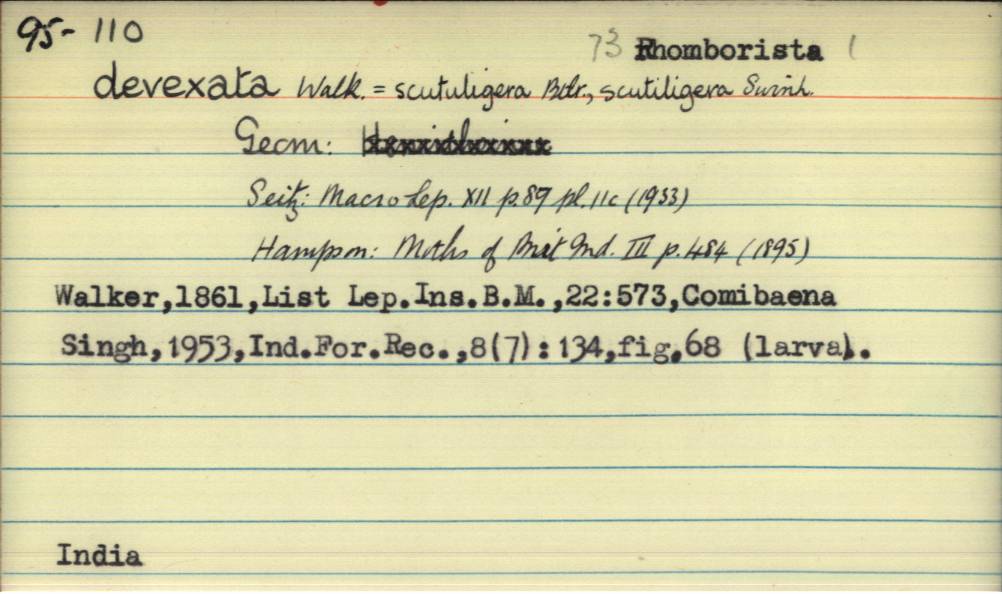 95- 110
73 Rhomborista 1
devexata Walk. = scutuligera Btlr., scutiligera Swinh.
Geom:
Seitz: Macrolep. XII p.89 pl.11c (1933)
Hampson: Moths of Brit Ind. III p.484 (1895)
Walker,1861,List Lep.Ins.B.M.,22:573,Comibaena
Singh,1953,Ind.For.Rec.,8(7):134,fig.68 (larva).
India